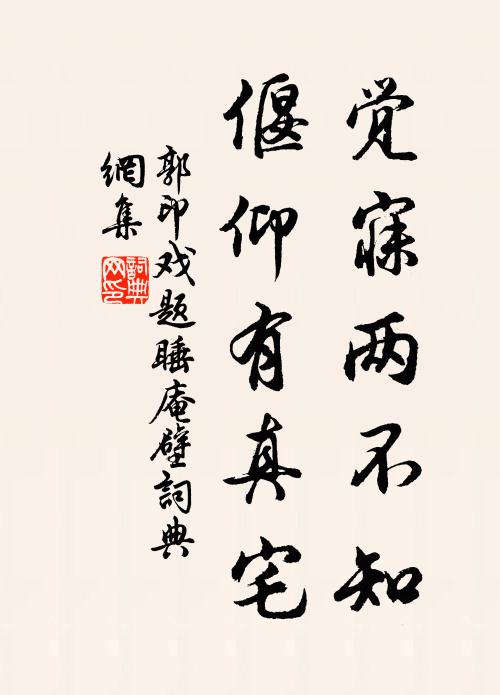 觉寐两不知
偃仰有真宅
郭印戏题睡庵壁詞典
網集
詞典
网印